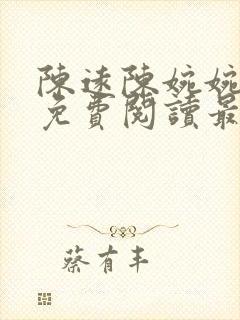 陳遠陳婉婉
免費閱讀最
蔡有丰